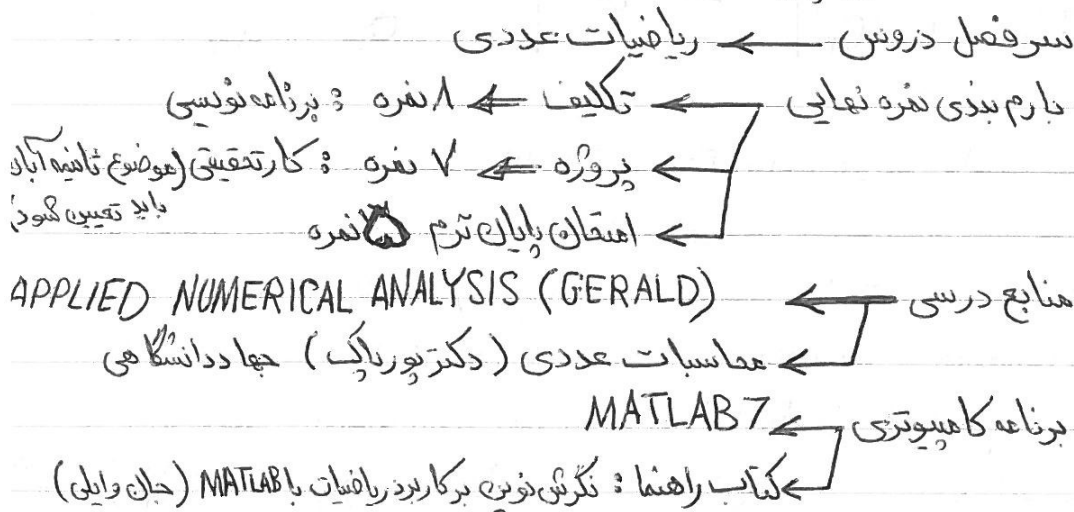 سرفصل دروس ← ریاضیات عددی
بارم بندی نمره نهایی ← تکلیف ⇐ ۸ نمره : برنامه نویسی
← پروژه ⇐ ۷ نمره : کار تحقیقی (موضوع تا نیمه آبان
باید تعیین شود)
← امتحان پایان ترم ۵ نمره
منابع درسی ← APPLIED NUMERICAL ANALYSIS (GERALD)
← محاسبات عددی (دکتر پورپاک) جهاد دانشگاهی
برنامه کامپیوتری ← MATLAB 7
← کتاب راهنما : نگرش نوین بر کاربرد ریاضیات با MATLAB (جان وایلی)